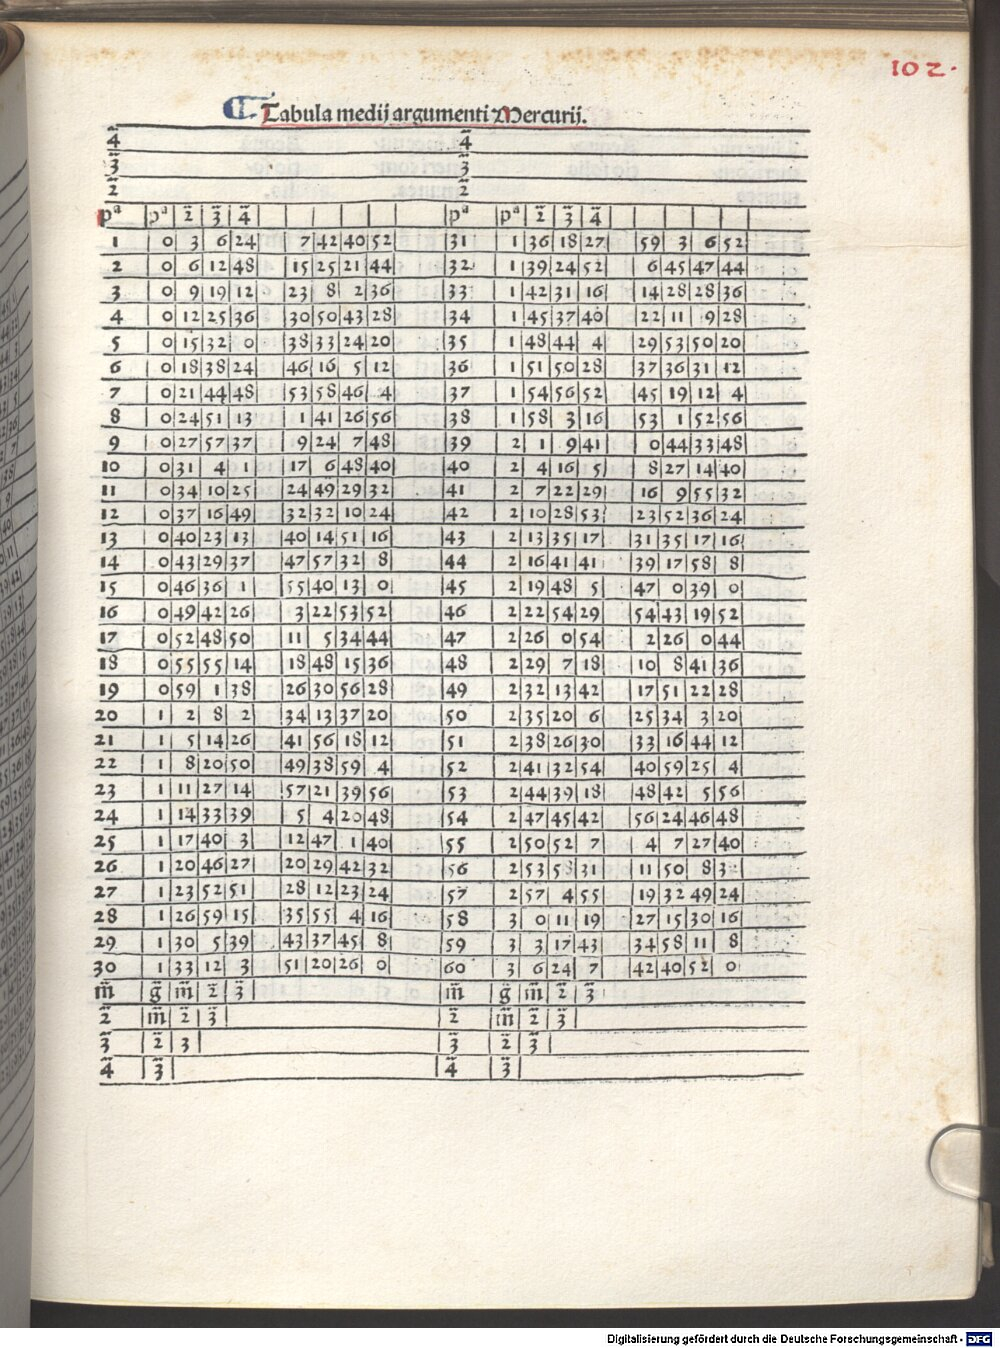 102.
Tabula medij argumenti Mercurij.
4̄ 4̄
3̄ 3̄
2̄ 2̄
pª pª 2̄ 3̄ 4̄ pª pª 2̄ 3̄ 4̄
1 0 3 6 24 7 42 40 52 31 1 36 18 27 59 3 6 52
2 0 6 12 48 15 25 21 44 32 1 39 24 52 6 45 47 44
3 0 9 19 12 23 8 2 36 33 1 42 31 16 14 28 28 36
4 0 12 25 36 30 50 43 28 34 1 45 37 40 22 11 9 28
5 0 15 32 0 38 33 24 20 35 1 48 44 4 29 53 50 20
6 0 18 38 24 46 16 5 12 36 1 51 50 28 37 36 31 12
7 0 21 44 48 53 58 46 4 37 1 54 56 52 45 19 12 4
8 0 24 51 13 1 41 26 56 38 1 58 3 16 53 1 52 56
9 0 27 57 37 9 24 7 48 39 2 1 9 41 0 44 33 48
10 0 31 4 1 17 6 48 40 40 2 4 16 5 8 27 14 40
11 0 34 10 25 24 49 29 32 41 2 7 22 29 16 9 55 32
12 0 37 16 49 32 32 10 24 42 2 10 28 53 23 52 36 24
13 0 40 23 13 40 14 51 16 43 2 13 35 17 31 35 17 16
14 0 43 29 37 47 57 32 8 44 2 16 41 41 39 17 58 8
15 0 46 36 1 55 40 13 0 45 2 19 48 5 47 0 39 0
16 0 49 42 26 3 22 53 52 46 2 22 54 29 54 43 19 52
17 0 52 48 50 11 5 34 44 47 2 26 0 54 2 26 0 44
18 0 55 55 14 18 48 15 36 48 2 29 7 18 10 8 41 36
19 0 59 1 38 26 30 56 28 49 2 32 13 42 17 51 22 28
20 1 2 8 2 34 13 37 20 50 2 35 20 6 25 34 3 20
21 1 5 14 26 41 56 18 12 51 2 38 26 30 33 16 44 12
22 1 8 20 50 49 38 59 4 52 2 41 32 54 40 59 25 4
23 1 11 27 14 57 21 39 56 53 2 44 39 18 48 42 5 56
24 1 14 33 39 5 4 20 48 54 2 47 45 42 56 24 46 48
25 1 17 40 3 12 47 1 40 55 2 50 52 7 4 7 27 40
26 1 20 46 27 20 29 42 32 56 2 53 58 31 11 50 8
27 1 23 52 51 28 12 23 24 57 2 57 4 55 19 32 49 24
28 1 26 59 15 35 55 4 16 58 3 0 11 19 27 15 30 16
29 1 30 5 39 43 37 45 8 59 3 3 17 43 34 58 11 8
30 1 33 12 3 51 20 26 0 60 3 6 24 7 42 40 52 0
m̄ ḡ m̄ 2̄ 3̄ m̄ ḡ m̄ 2̄ 3̄
2̄ m̄ 2̄ 3̄ 2̄ m̄ 2̄ 3̄
3̄ 2̄ 3 3̄ 2̄ 3̄
4̄ 3̄ 4̄ 3̄
Digitalisierung gefördert durch die Deutsche Forschungsgemeinschaft - DFG